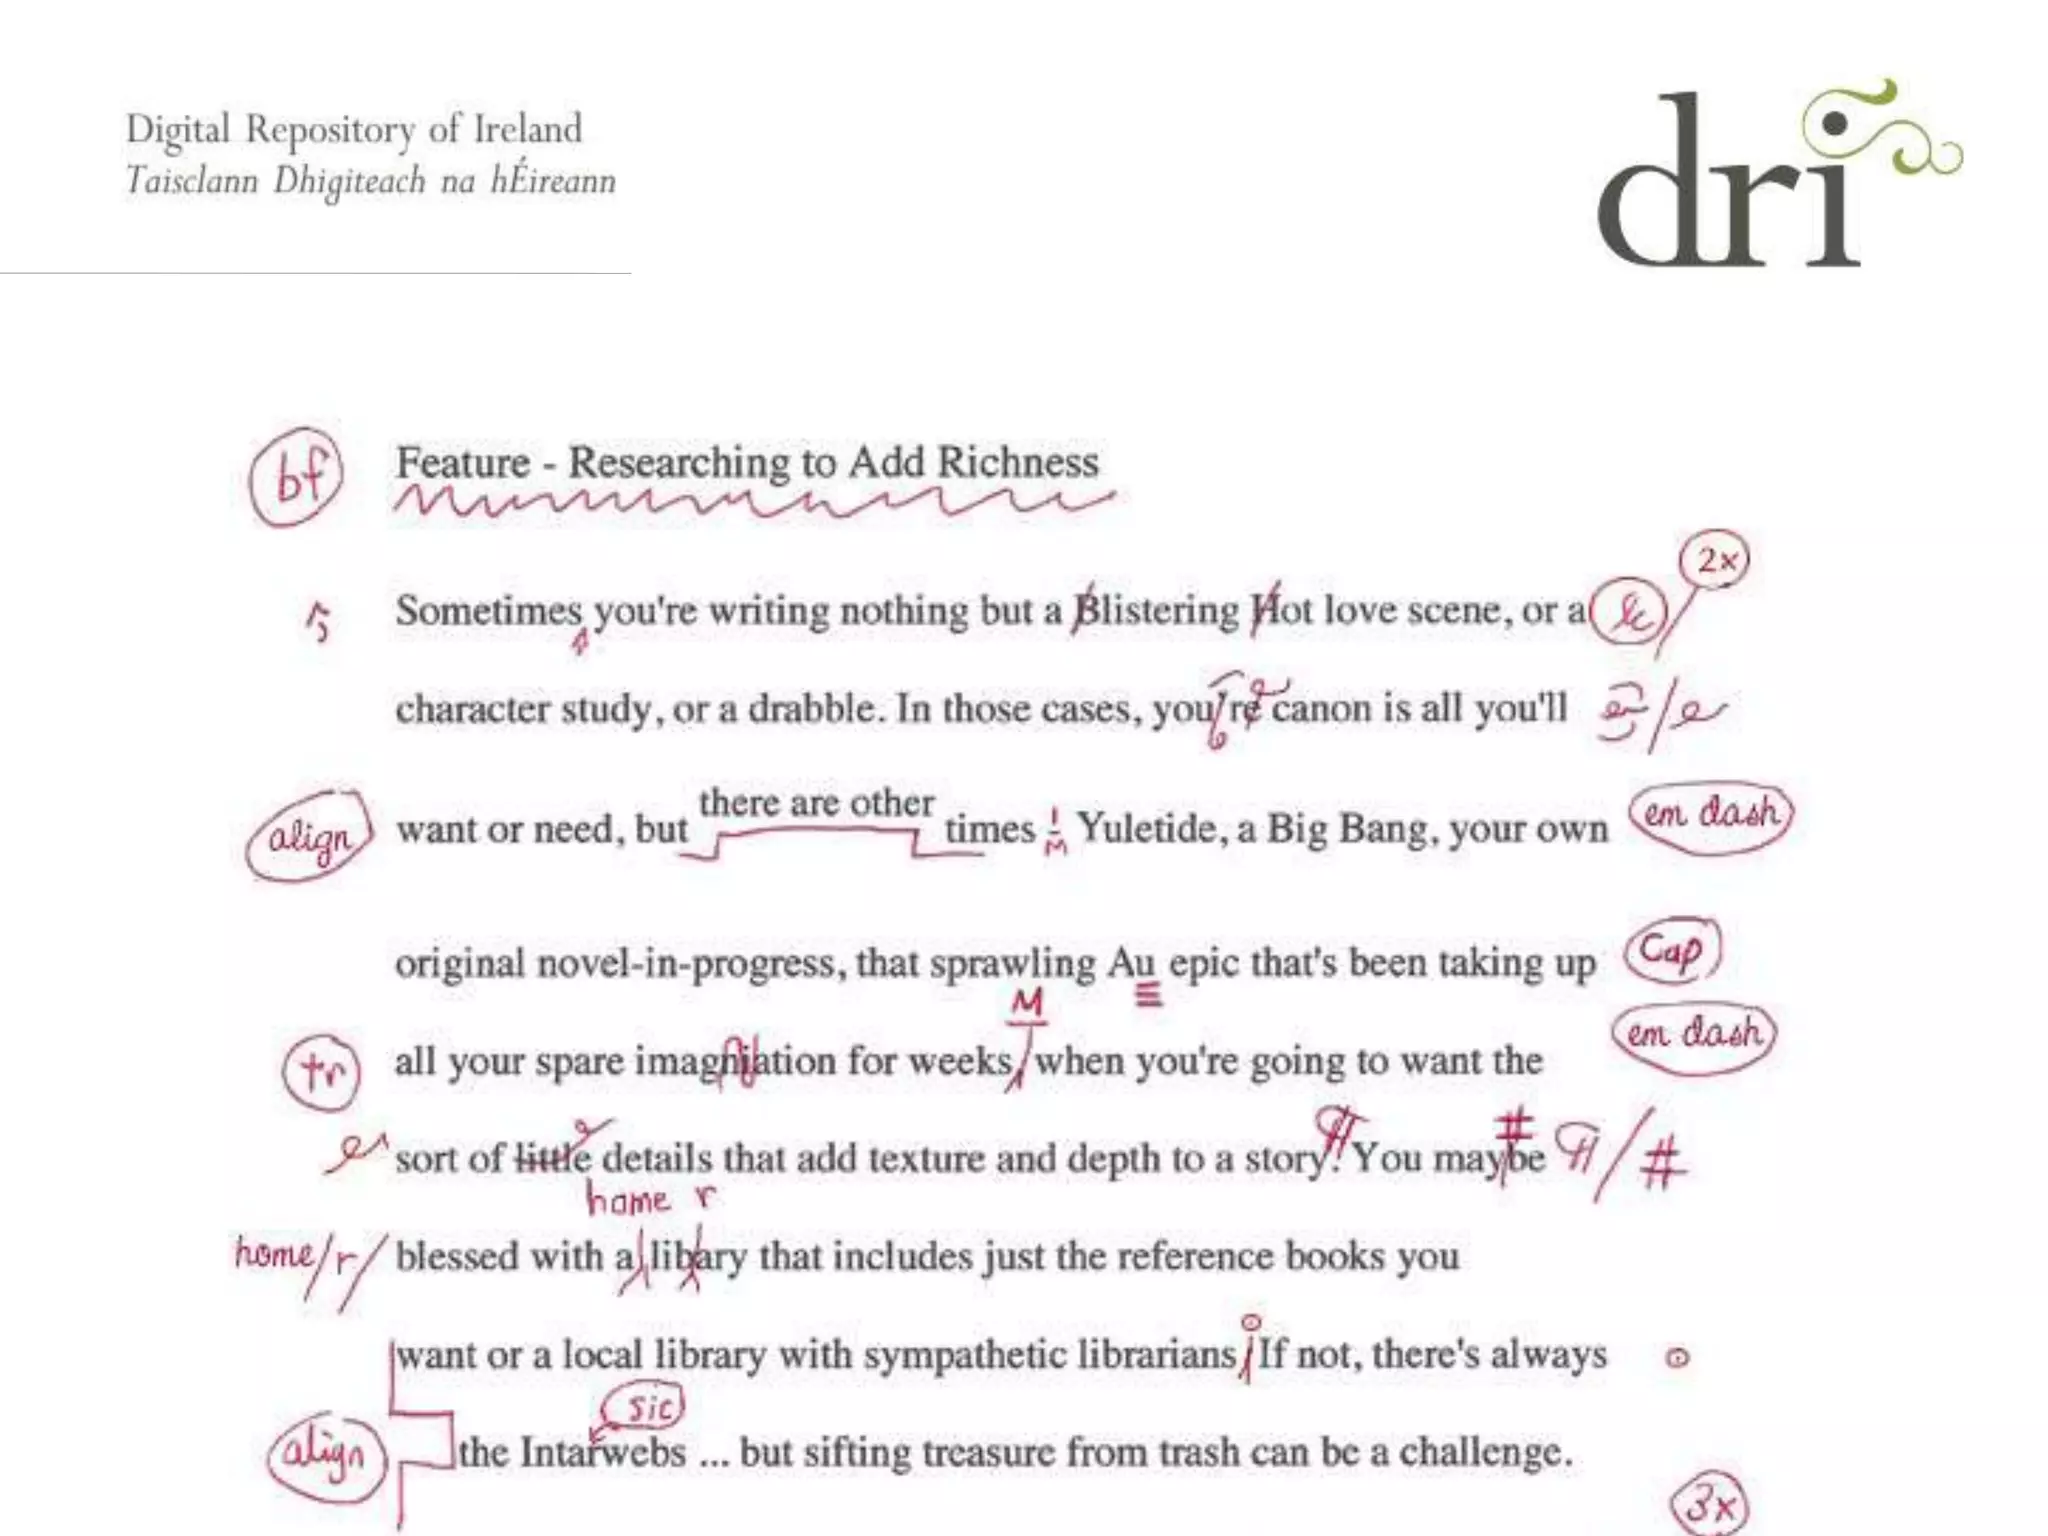 Digital Repository of Ireland
Taisclann Dhigiteach na hÉireann
dri
bf Feature - Researching to Add Richness
2x
Sometimes you're writing nothing but a Blistering Hot love scene, or a lc
character study, or a drabble. In those cases, you're canon is all you'll
there are other
align want or need, but times - Yuletide, a Big Bang, your own em dash
M
original novel-in-progress, that sprawling Au epic that's been taking up Cap
M
em dash
tr all your spare imagniation for weeks, when you're going to want the
sort of little details that add texture and depth to a story. You maybe ¶/#
home r
home/r/ blessed with a libary that includes just the reference books you
want or a local library with sympathetic librarians If not, there's always
sic
align the Intarwebs ... but sifting treasure from trash can be a challenge.
3x